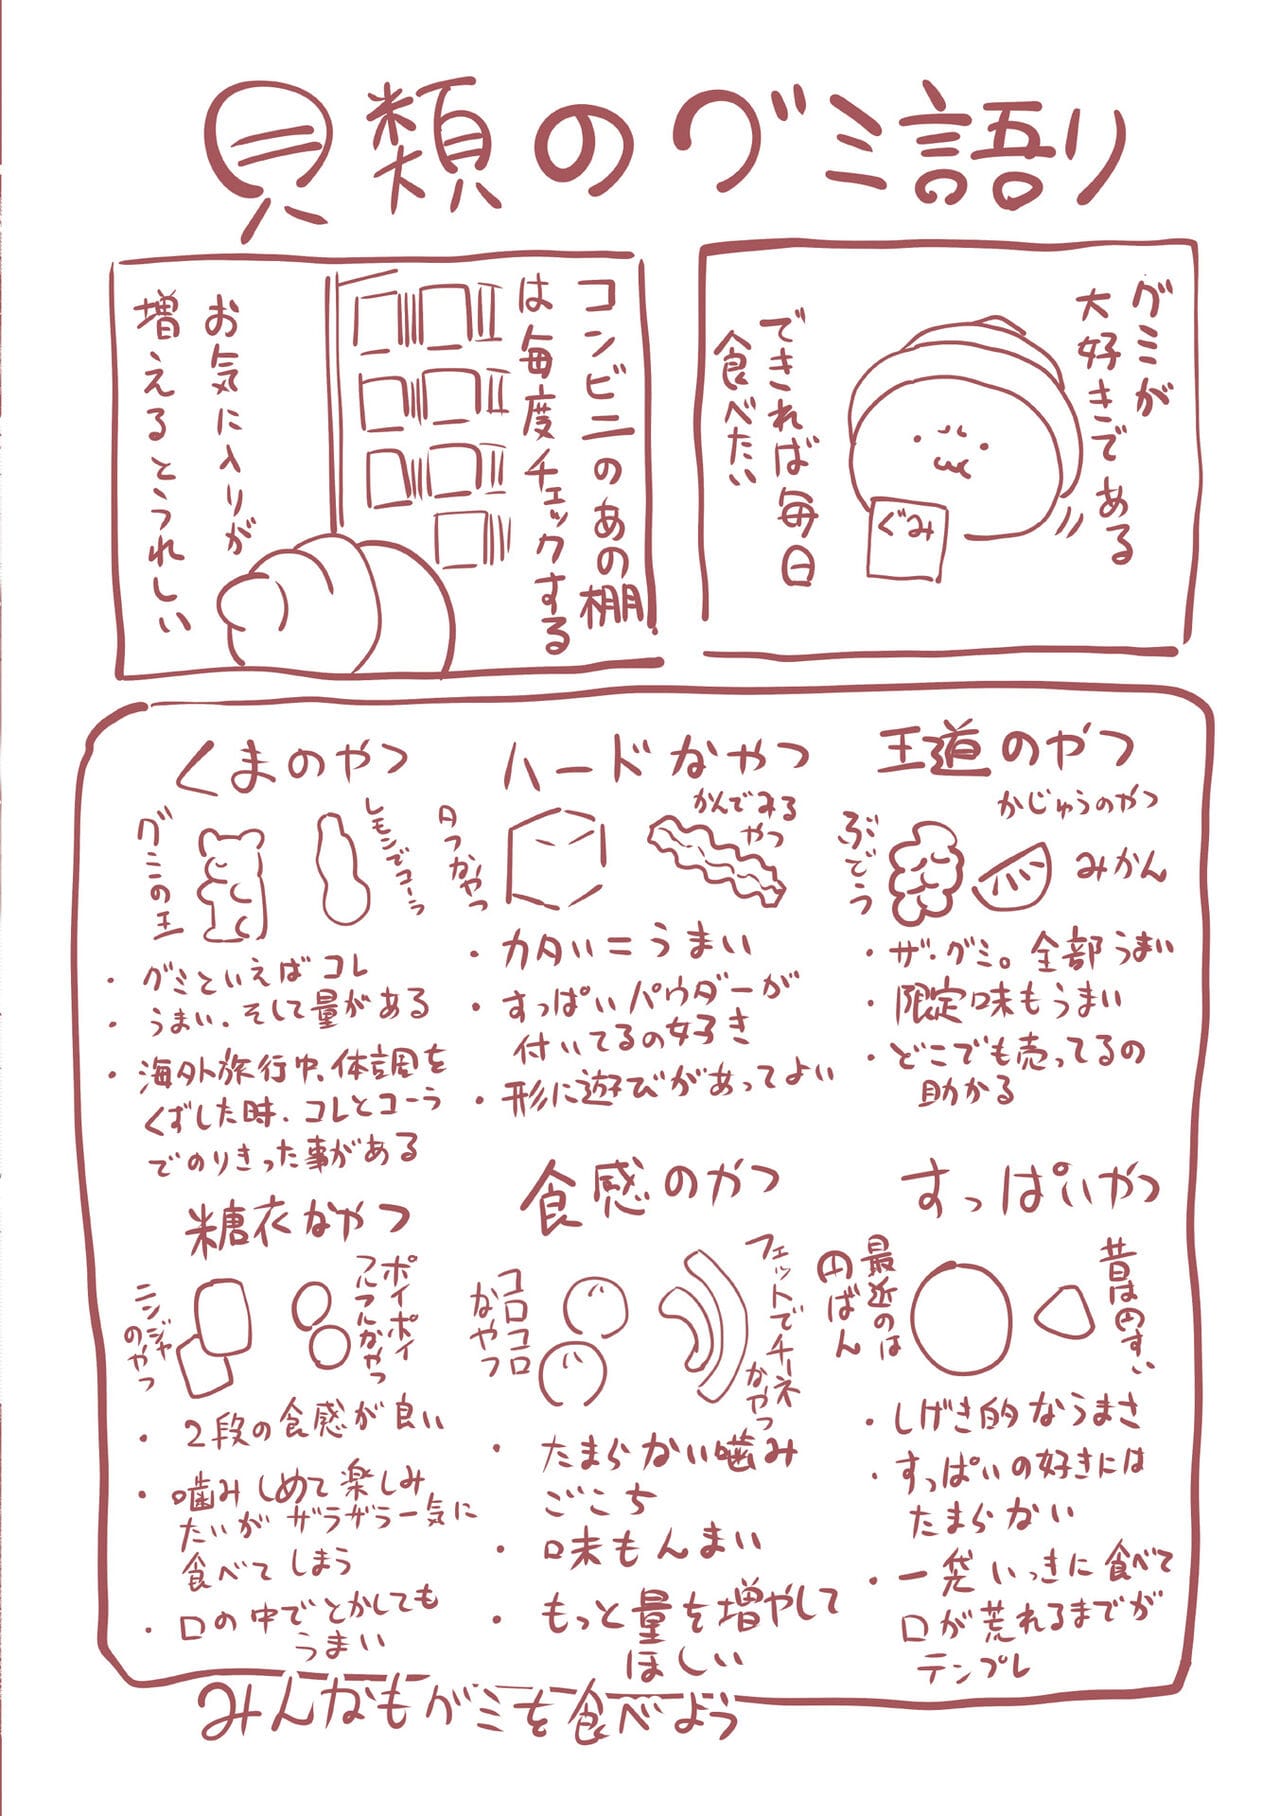 貝類のグミ語り
グミが
大好きである
できれば毎日
食べたい
ぐみ
コンビニのあの棚
は毎度チェックする
お気に入りが
増えるとうれしい
王道のやつ
かじゅうのやつ
ぶどう
みかん
・ザ・グミ。全部うまい
・限定味もうまい
・どこでも売ってるの
助かる
ハードなやつ
かんでみる
やつ
・カタい=うまい
・すっぱいパウダーが
付いてるの好き
・形に遊びがあってよい
くまのやつ
グミの王
レモンでコーラ
・グミといえばコレ
・うまい、そして量がある
・海外旅行中、体調を
くずした時、コレとコーラ
でのりきった事がある
すっぱいやつ
昔は円すい
最近のは
円ばん
・しげき的なうまさ
・すっぱいの好きには
たまらない
・一発いっきに食べて
口が荒れるまでが
テンプレ
食感のやつ
フェットでチーネ
なやつ
コロコロ
なやつ
・たまらない噛み
ごこち
・味もんまい
・もっと量を増やして
ほしい
糖衣なやつ
ポイポイ
フルフルなやつ
ニンジャ
のやつ
・2段の食感が良い
・噛みしめて楽しみ
たいがザラザラ一気に
食べてしまう
・口の中でとかしても
うまい
みんなもグミを食べよう